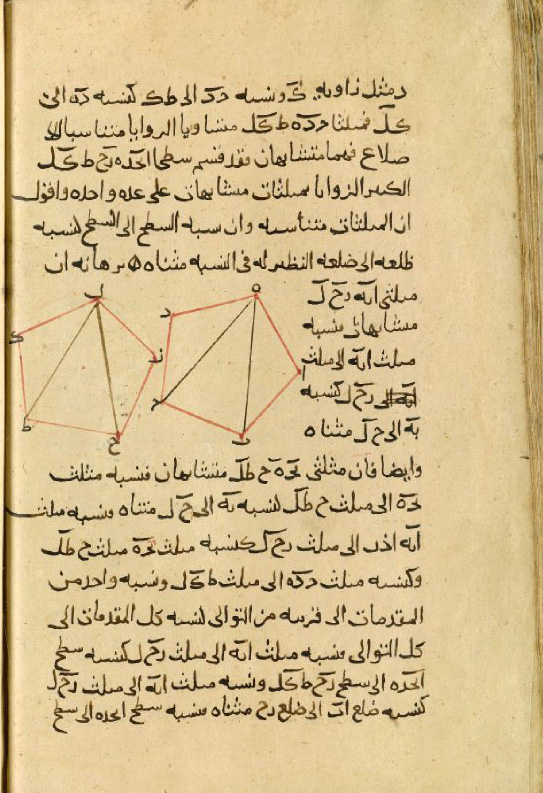 مثل زاوية ك ونسبة جد الى طك كنسبة ده الى
كل فمثلثا جده طكل متساويا الزوايا متناسبا الا
ضلاع فهما متشابهان فقد قسم سطحا ابجده زح طكل
الكثيرا الزوايا بمثلثات متشابهات على عدة واحدة واقول
ان المثلثات متناسبة وان نسبة السطح الى السطح كنسبة
ضلعه الى ضلعه النظير له في النسبة مثناه برهانه ان
مثلثي ابه زحل
متشابهان فنسبة
مثلث ابه الى مثلث
زحل كنسبة
به الى حل مثناه
ل
ه
د
ك
ز
ا
ج
ط
ح
ب
وايضا فان مثلثي بجه حطل متشابهان فنسبة مثلث
بجه الى مثلث حطل كنسبة به الى حل مثناه فنسبة مثلث
ابه اذن الى مثلث زحل كنسبة مثلث بجه مثلث حطل
وكنسبة مثلث جده الى مثلث طكل ونسبة واحد من
المقدمات الى قرينه من التوالي كنسبة كل المقدمات الى
كل التوالي فنسبة مثلث ابه الى مثلث زحل كنسبة سطح
ابجده الى سطح زح طكل ونسبة مثلث ابه الى مثلث زحل
كنسبة ضلع اب الى ضلع زح مثناه فنسبة سطح ابجده الى سطح